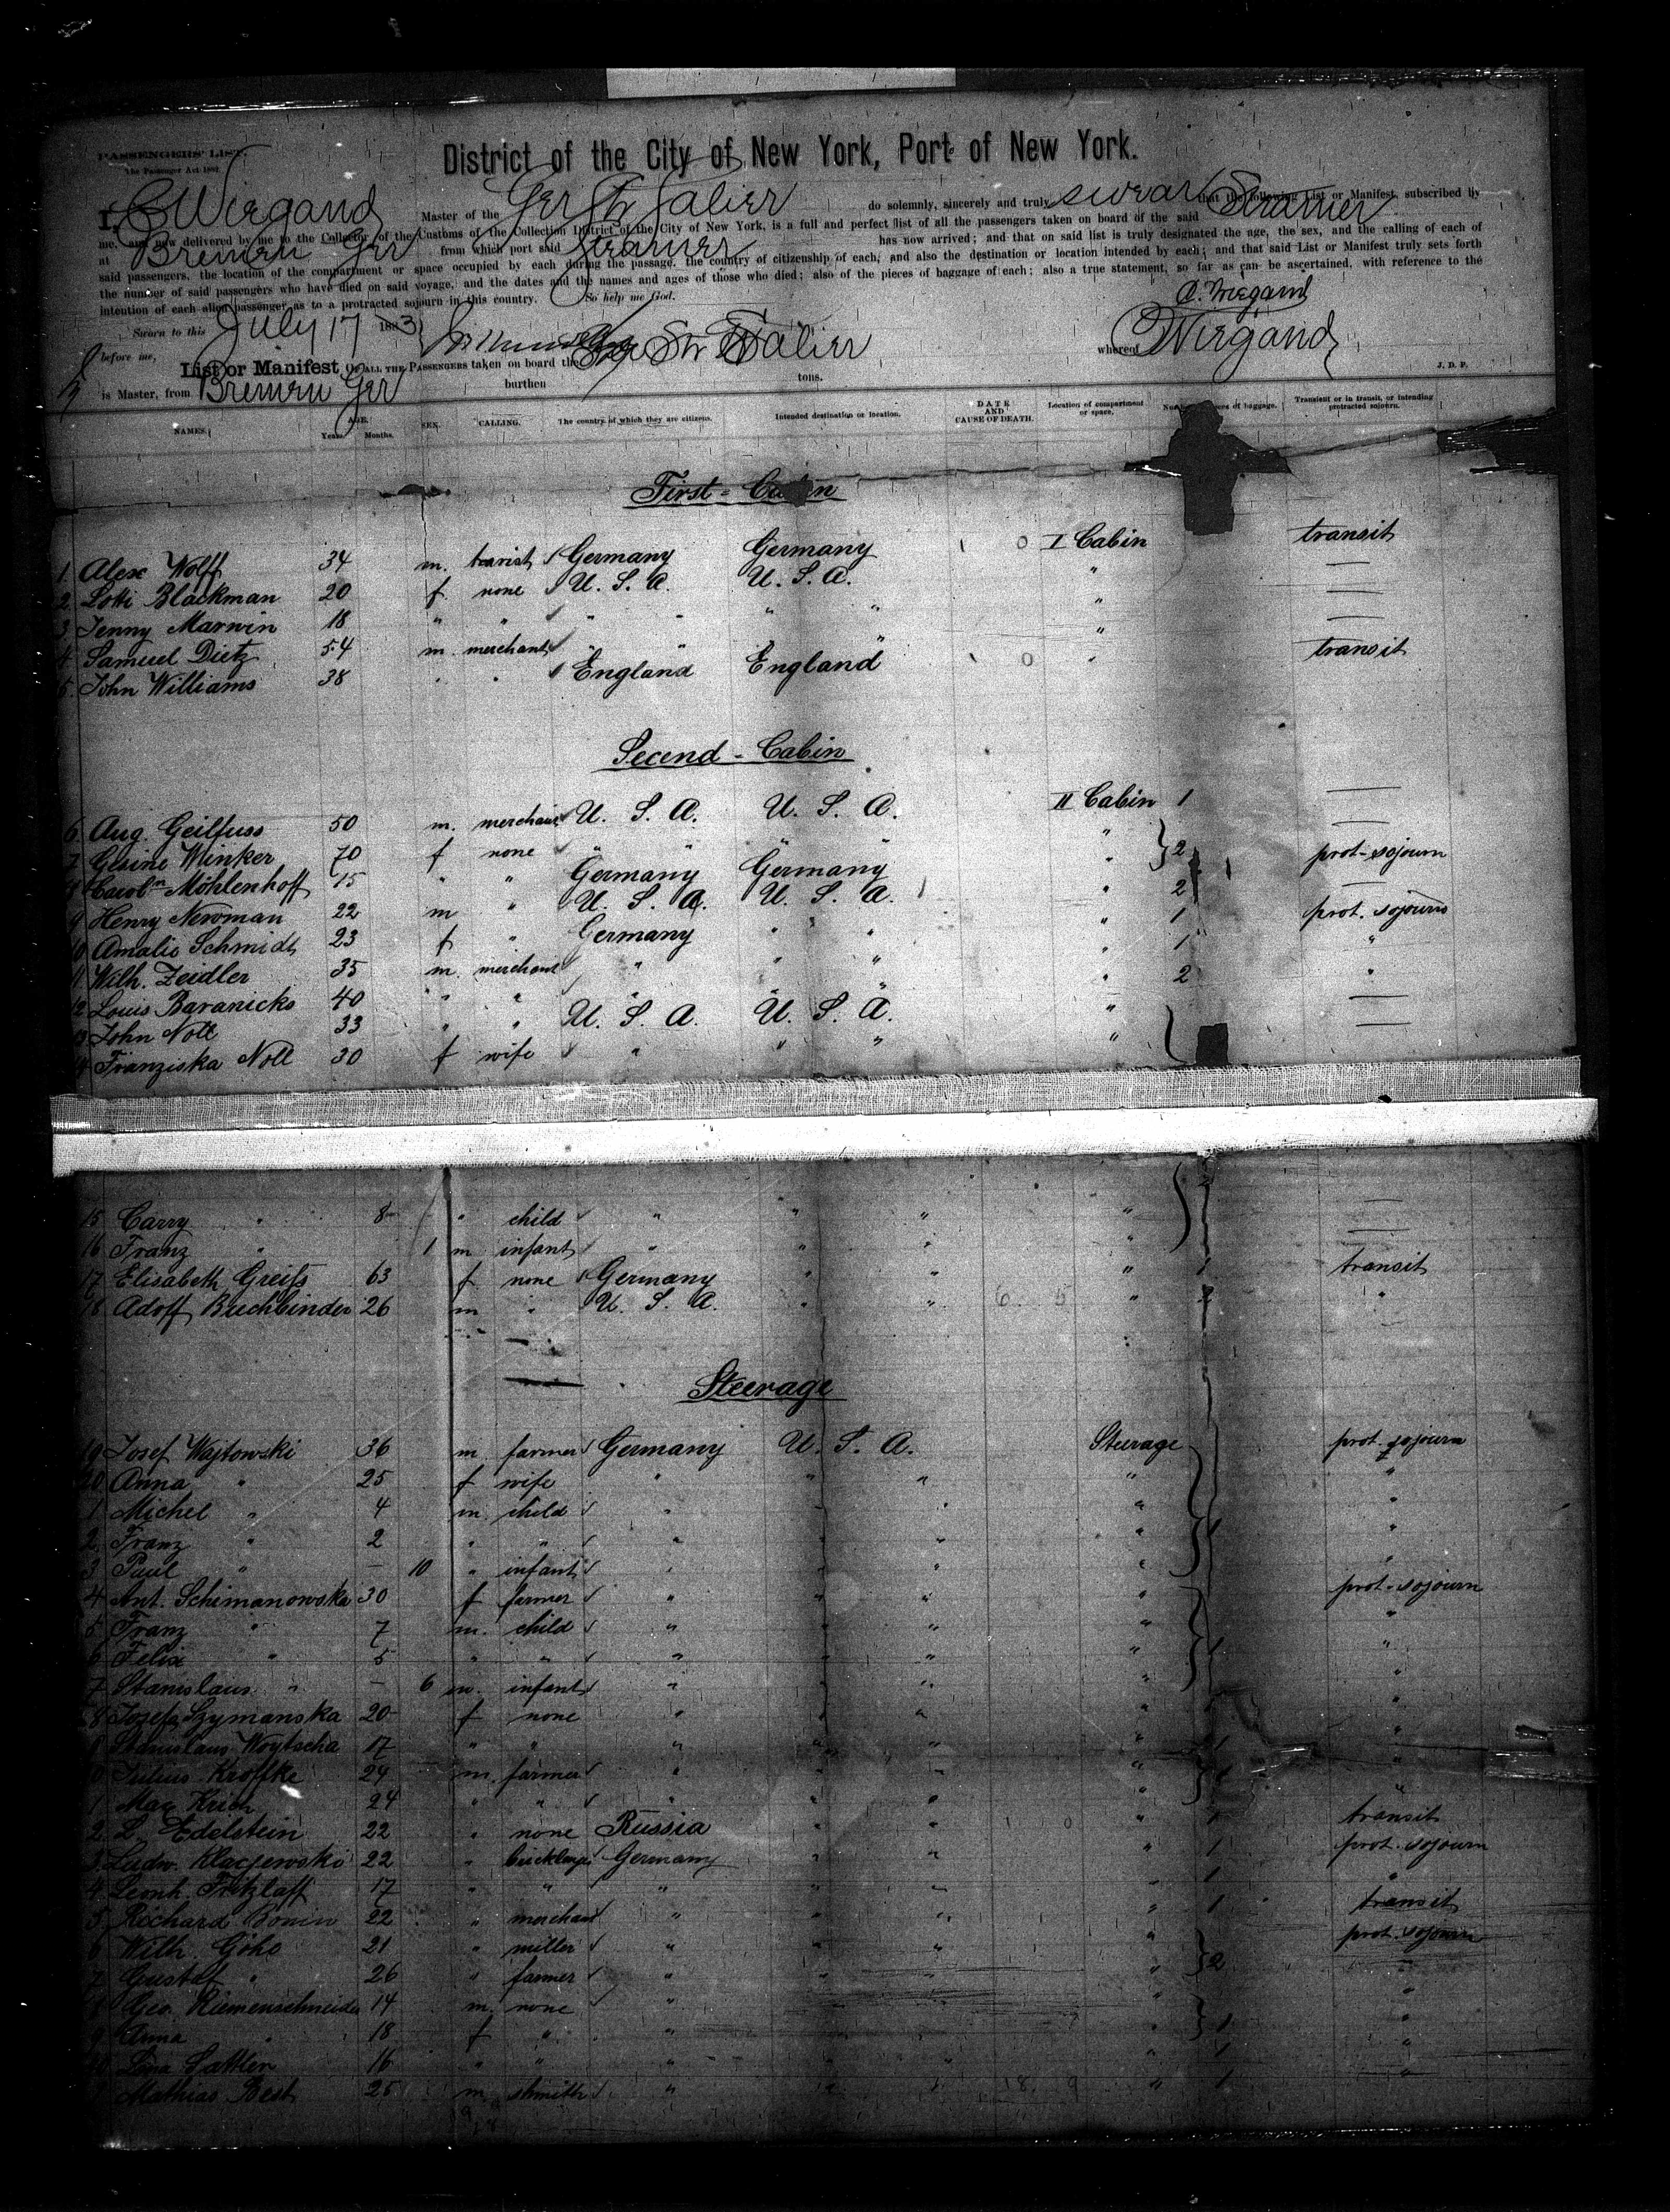 PASSENGERS' LIST.
The Passenger Act 1882
District of the City of New York, Port of New York.
I, C Wiegand Master of the Ger Str Salier do solemnly, sincerely and truly swear that the following List or Manifest, subscribed by
me, and now delivered by me to the Collector of the Customs of the Collection District of the City of New York, is a full and perfect list of all the passengers taken on board of the said Steamer
at Bremen Ger from which port said Steamer has now arrived; and that on said list is truly designated the age, the sex, and the calling of each of
said passengers, the location of the compartment or space occupied by each during the passage, the country of citizenship of each, and also the destination or location intended by each; and that said List or Manifest truly sets forth
the number of said passengers who have died on said voyage, and the dates and the names and ages of those who died; also of the pieces of baggage of each; also a true statement, so far as can be ascertained, with reference to the
intention of each alien passenger as to a protracted sojourn in this country. So help me God.
C. Wiegand
Sworn to this July 17 1883
before me,
List or Manifest OF ALL THE PASSENGERS taken on board the Ger Str Salier whereof C Wiegand
is Master, from Bremen Ger burthen tons. J. D. P.
NAMES. AGE. Years. Months. SEX. CALLING. The country of which they are citizens. Intended destination or location. DATE AND CAUSE OF DEATH. Location of compartment or space. of baggage. Transient or in transit, or intending protracted sojourn.
First = Cabin
1. Alex Wolff 34 m. tourist Germany Germany 1 0 I Cabin transit
2. Lotti Blackman 20 f. none U. S. A. U. S. A. " —
3. Jenny Marwin 18 " " " " " " —
4. Samuel Dietz 54 m. merchant " " " " —
5. John Williams 38 " " England England 1 0 " transit
Secend - Cabin
6. Aug. Geilfuss 50 m. merchant U. S. A. U. S. A. II Cabin 1 —
7. Gesine Winker 70 f none " " " } 2 —
8. Carol'n Möhlenhoff 15 " " Germany Germany " prot. sojourn
9. Henry Newman 22 m " U. S. A. U. S. A. " 2 —
10 Amalie Schmidt 23 f " Germany " " " 1 prot. sojourn
11 Wilh. Zeidler 35 m. merchant " " " " 1 "
12 Louis Baranicks 40 " " " " " 2 "
13 John Noll 33 " " U. S. A. U. S. A. " —
14 Franziska Noll 30 f wife " " " " —
15 Carry " 8 " child " " " " —
16 Franz " 1 m infant " " " " —
17 Elisabeth Greifs 63 f. none Germany " " " 1 transit
18 Adolf Buchbinder 26 m " U. S. A. " " 6 5 " 2 "
Steerage
19 Josef Wajtowski 36 m farmer Germany U. S. A. Steerage prot. sojourn
20 Anna " 25 f wife " " " " "
1 Michel " 4 m. child " " " " "
2 Franz " 2 " " " " " " 1 "
3 Paul " — 10 " infant " " " " "
4 Ant. Schimanowska 30 f farmer " " " " prot. sojourn
5 Franz " 7 m. child " " " " "
6 Felix " 5 " " " " " " 1 "
7 Stanislaus " — 6 m. infant " " " " "
8 Josefa Szymanska 20 f none " " " " 1 "
9 Stanislaus Woytscha 17 " " " " " " 1 "
30 Julius Kroffke 24 m. farmer " " " " 1 "
1 Max 24 " " " " " " "
2 L. Edelstein 22 " none Russia " " 1 0 " 1 transit
3 Ludw. Klacjewski 22 " Germany " " " 1 prot. sojourn
4 Leonh. Fritzlaff 17 " " " " " " 1 "
5 Richard Bonin 22 " merchant " " " " 1 transit
6 Wilh. Göhe 21 " miller " " " " prot. sojourn
7 Gustaf " 26 " farmer " " " " } 2 "
8 Geo. Riemenschneider 14 m. none " " "
9 Anna " 18 f " " " } 1 "
40 Lina Sattler 16 " " " " 1 "
1 Mathias Best 25 m. shmith " " 18 9 " 1 "